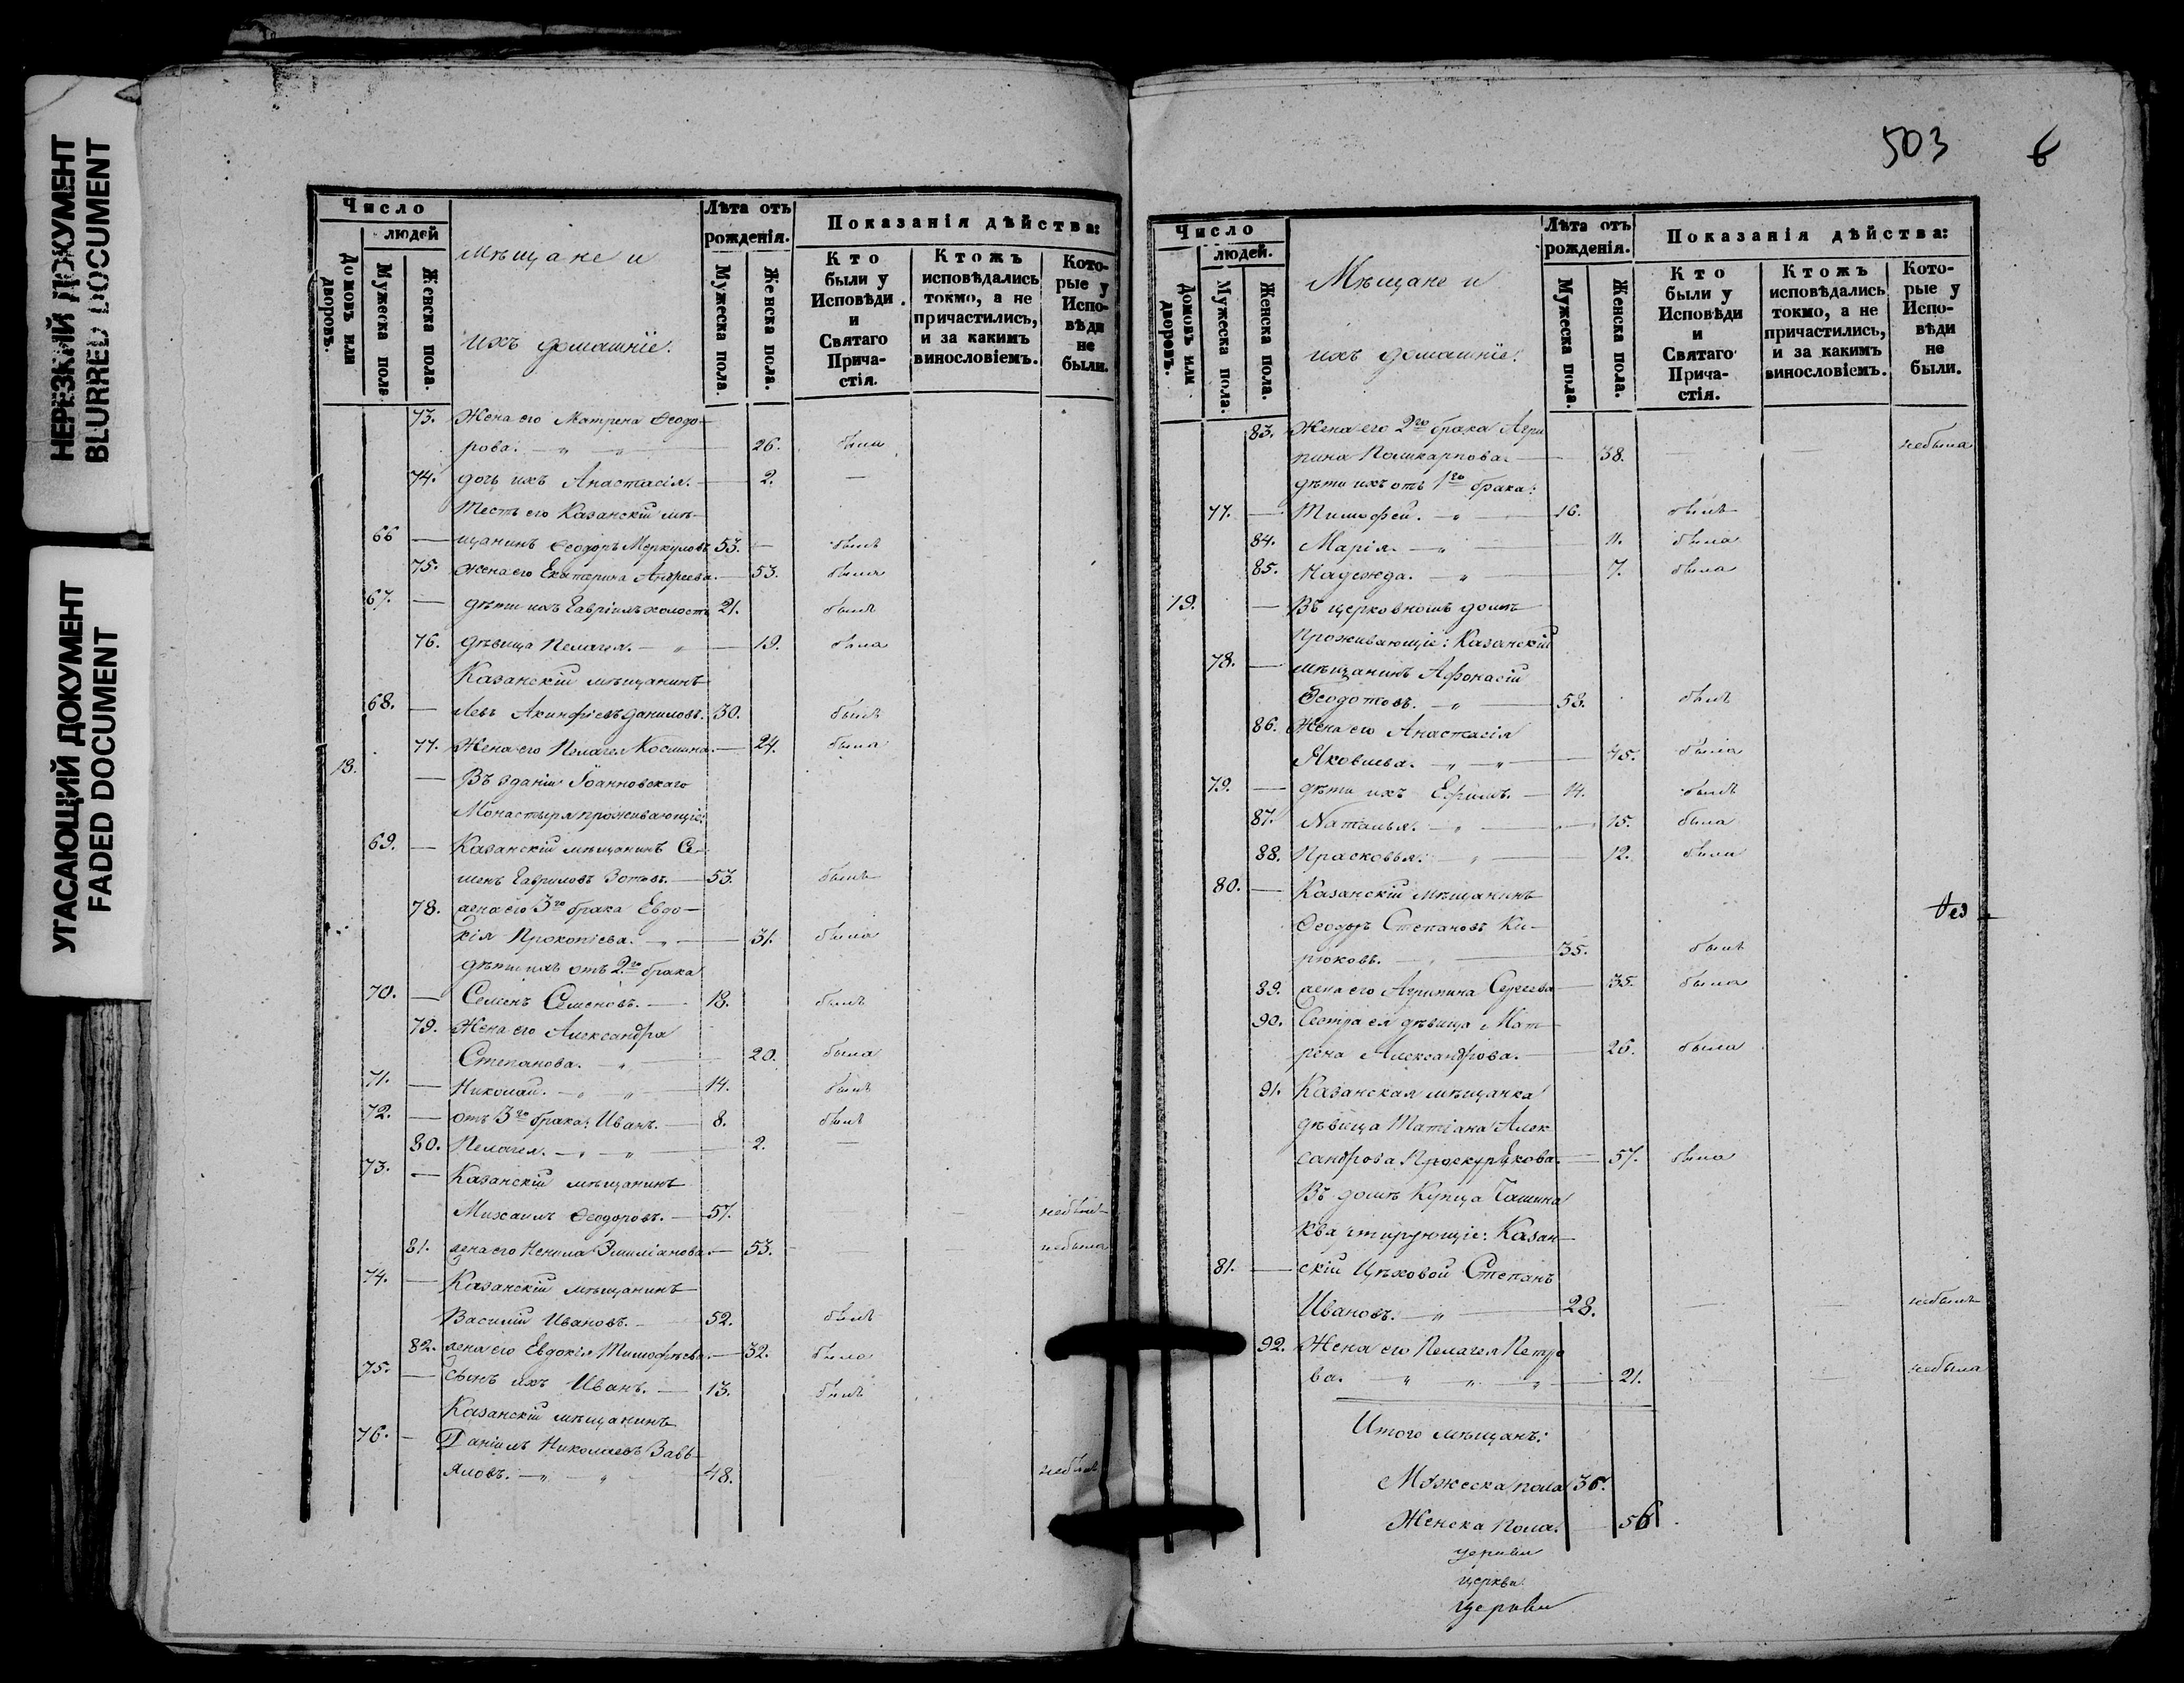 НЕРЕЗКИЙ ДОКУМЕНТ
BLURRED DOCUMENT
УГАСАЮЩИЙ ДОКУМЕНТ
FADED DOCUMENT
Число
людей
Домовъ или дворовъ.
Мужеска пола
Женска пола.
Мѣщане и
ихъ домашніе.
Лѣта отъ рожденія.
Мужеска пола
Женска пола.
Показанія дѣйства:
Кто были у Исповѣди и Святаго Прича-стія.
Ктожъ исповѣдались токмо, а не причастились, и за какимъ винословіемъ.
Кото-рые у Испо-вѣди не были.
73. Жена его Матрена Ѳеодо-
рова. — „ — „ — 26. была
74. дочь ихъ Анастасія. — 2. —
Тесть его Казанскій мѣ-
66 — щанинъ Ѳеодоръ Меркуловъ 53. — былъ
75. Жена его Екатерина Андреева. — 53. была
67. — дѣти ихъ Гавріилъ холостъ 21. былъ
76. дѣвица Пелагея. — „ — 19. была
Казанскій мѣщанинъ
68. — Левъ Акинфіевъ Даниловъ. 30. былъ
77. Жена его Пелагея Косьмина. — 24. была
18. — Въ зданіи Іоанновскаго
Монастыря проживающіе:
69. — Казанскій мѣщанинъ Се-
менъ Гавриловъ Зотовъ. — 53. былъ
78. жена его 3го брака Евдо-
кія Прокопіева. — „ — 31. была
дѣти ихъ отъ 2го брака
70. — Семенъ Семеновъ. — 18. былъ
79. Жена его Александра
Степанова. — „ — 20. была
71. — Николай. — „ — „ — 14. былъ
72. — отъ 3го брака: Иванъ. — 8. былъ
80. Пелагея. — „ — „ — 2. —
73. — Казанскій мѣщанинъ
Михаилъ Ѳеодоровъ. — 57. небылъ
81. жена его Ненила Эмиліанова. — 53. небыла
74. — Казанскій мѣщанинъ
Василій Ивановъ. — 52. былъ
82. жена его Евдокія Тимофѣева. — 32. была
75. — сынъ ихъ Иванъ. — 13. былъ
Казанскій мѣщанинъ
76. — Даніилъ Николаевъ Завь-
яловъ. — „ — „ 48. небылъ
503 6
Число
людей.
Домовъ или дворовъ.
Мужеска пола.
Женска пола.
Мѣщане и
ихъ домашніе.
Лѣта отъ рожденія.
Мужеска пола.
Женска пола.
Показанія дѣйства:
Кто были у Исповѣди и Святаго Прича-стія.
Ктожъ исповѣдались токмо, а не причастились, и за какимъ винословіемъ.
Кото-рые у Испо-вѣди не были.
83. Жена его 2го брака Агри
пина Поликарпова. — 38. — — небыла
дѣти ихъ отъ 1го брака:
77. — Тимофей. — „ — 16. былъ
84. Марія. — „ — 11. была
85. Надежда. — „ — 7. была
19. — Въ церковномъ домѣ
проживающіе: Казанскій
78. — мѣщанинъ Афонасій
Ѳеодотовъ. — „ — 58. былъ
86. Жена его Анастасія
Яковлева. — „ — „ — 45. была
79. — дѣти ихъ Ефимъ. — 14. былъ
87. Наталья. — „ — 15. была
88. Прасковья. — „ — 12. была
80. — Казанскій мѣщанинъ
Ѳеодоръ Степановъ Ки-
рюковъ. — „ — 35. былъ
89. жена его Агрипина Сергѣева — 35. была
90. Сестра ея дѣвица Мат-
рена Александрова. — 26. была
91. Казанская мѣщанка
дѣвица Татіана Алек-
сандрова Проскурякова. — 57. была
Въ домѣ Купца
квартирующіе: Казан-
81. — скій Цѣховой Степанъ
Ивановъ. — „ — 28. — — небылъ
92. Жена его Пелагея Петро
ва. — „ — „ — „ — 21. — — небыла
Итого мѣщанъ:
Мужеска пола 36.
Женска пола. 56
церкви
церкви
Церкви